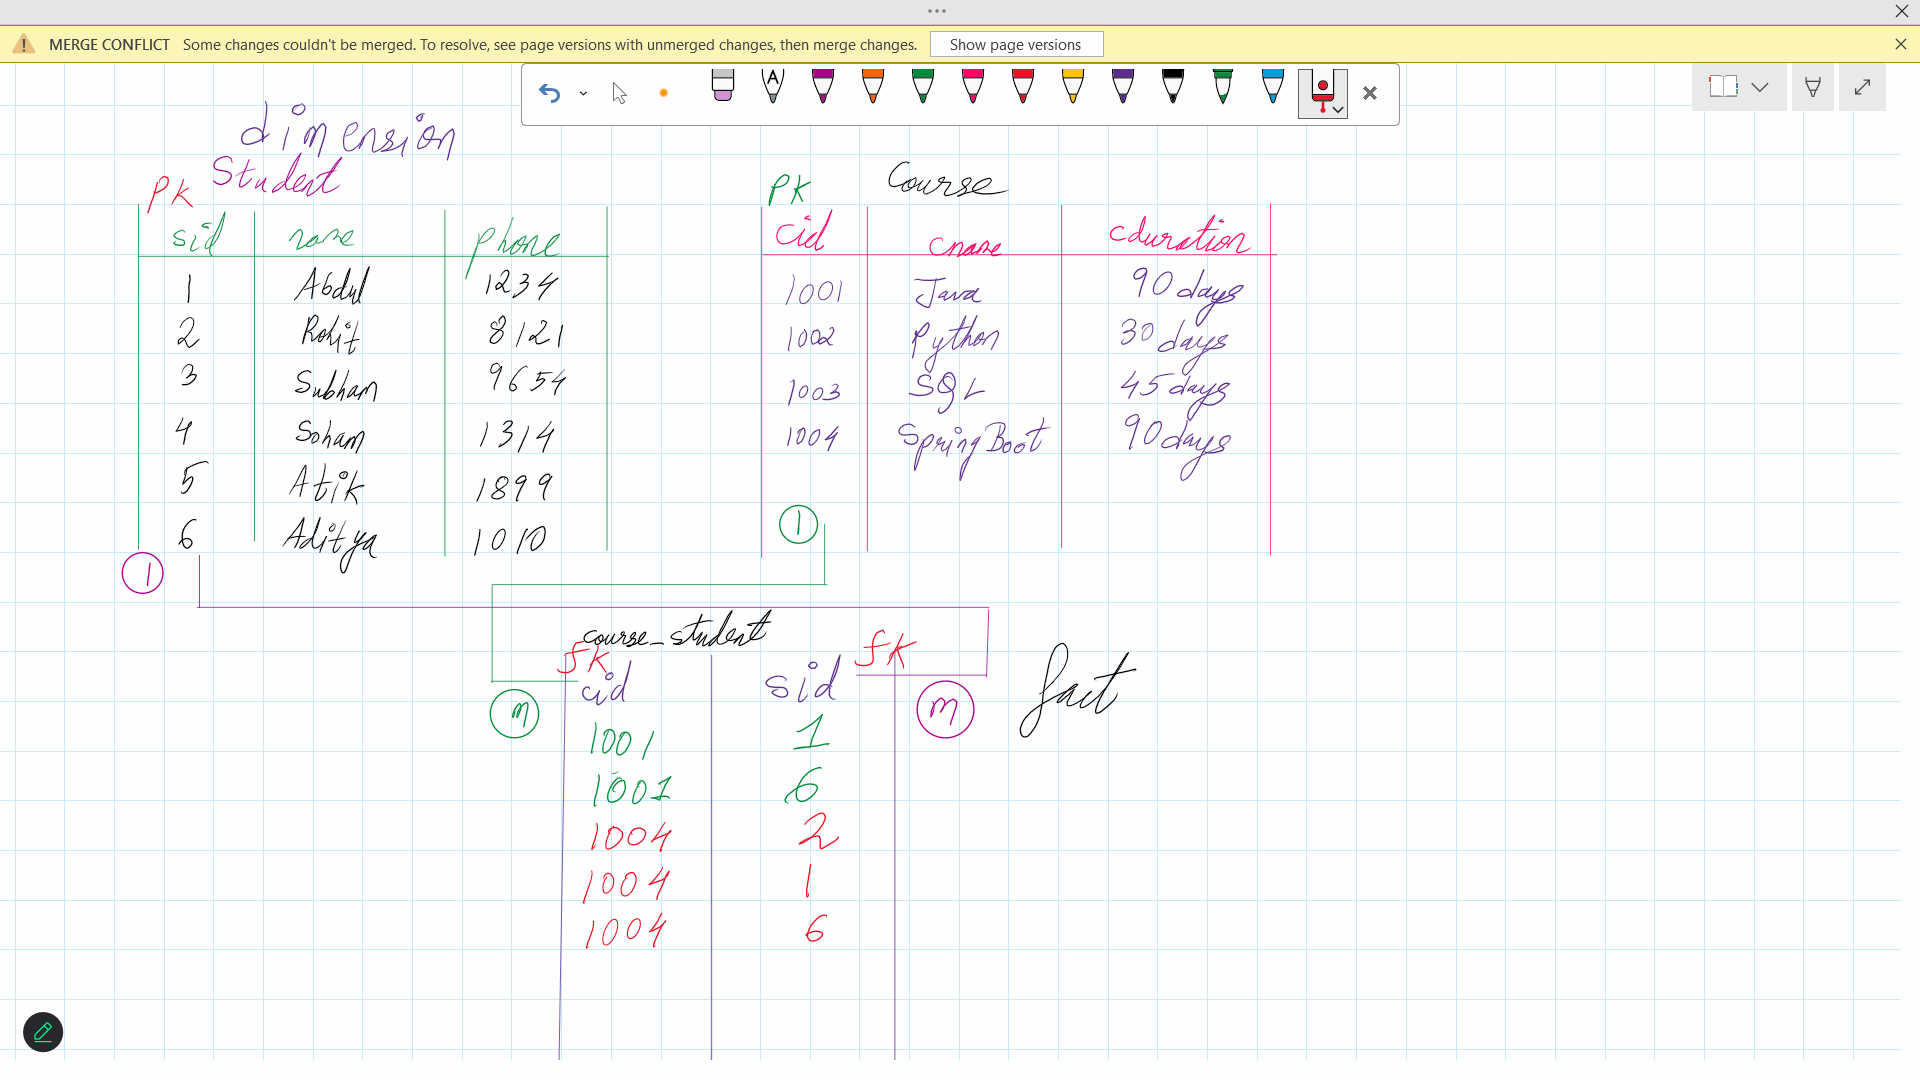 MERGE CONFLICT Some changes couldn't be merged. To resolve, see page versions with unmerged changes, then merge changes. Show page versions
A
dimension
Student
PK
sid name phone
1 Abdul 1234
2 Rohit 8121
3 Subham 9654
4 Soham 1314
5 Atik 1899
6 Aditya 1010
1
Course
PK
cid cname cduration
1001 Java 90 days
1002 Python 30 days
1003 SQL 45 days
1004 SpringBoot 90 days
1
course_student
fk fk
cid sid
m m
1001 1
1001 6
1004 2
1004 1
1004 6
fact